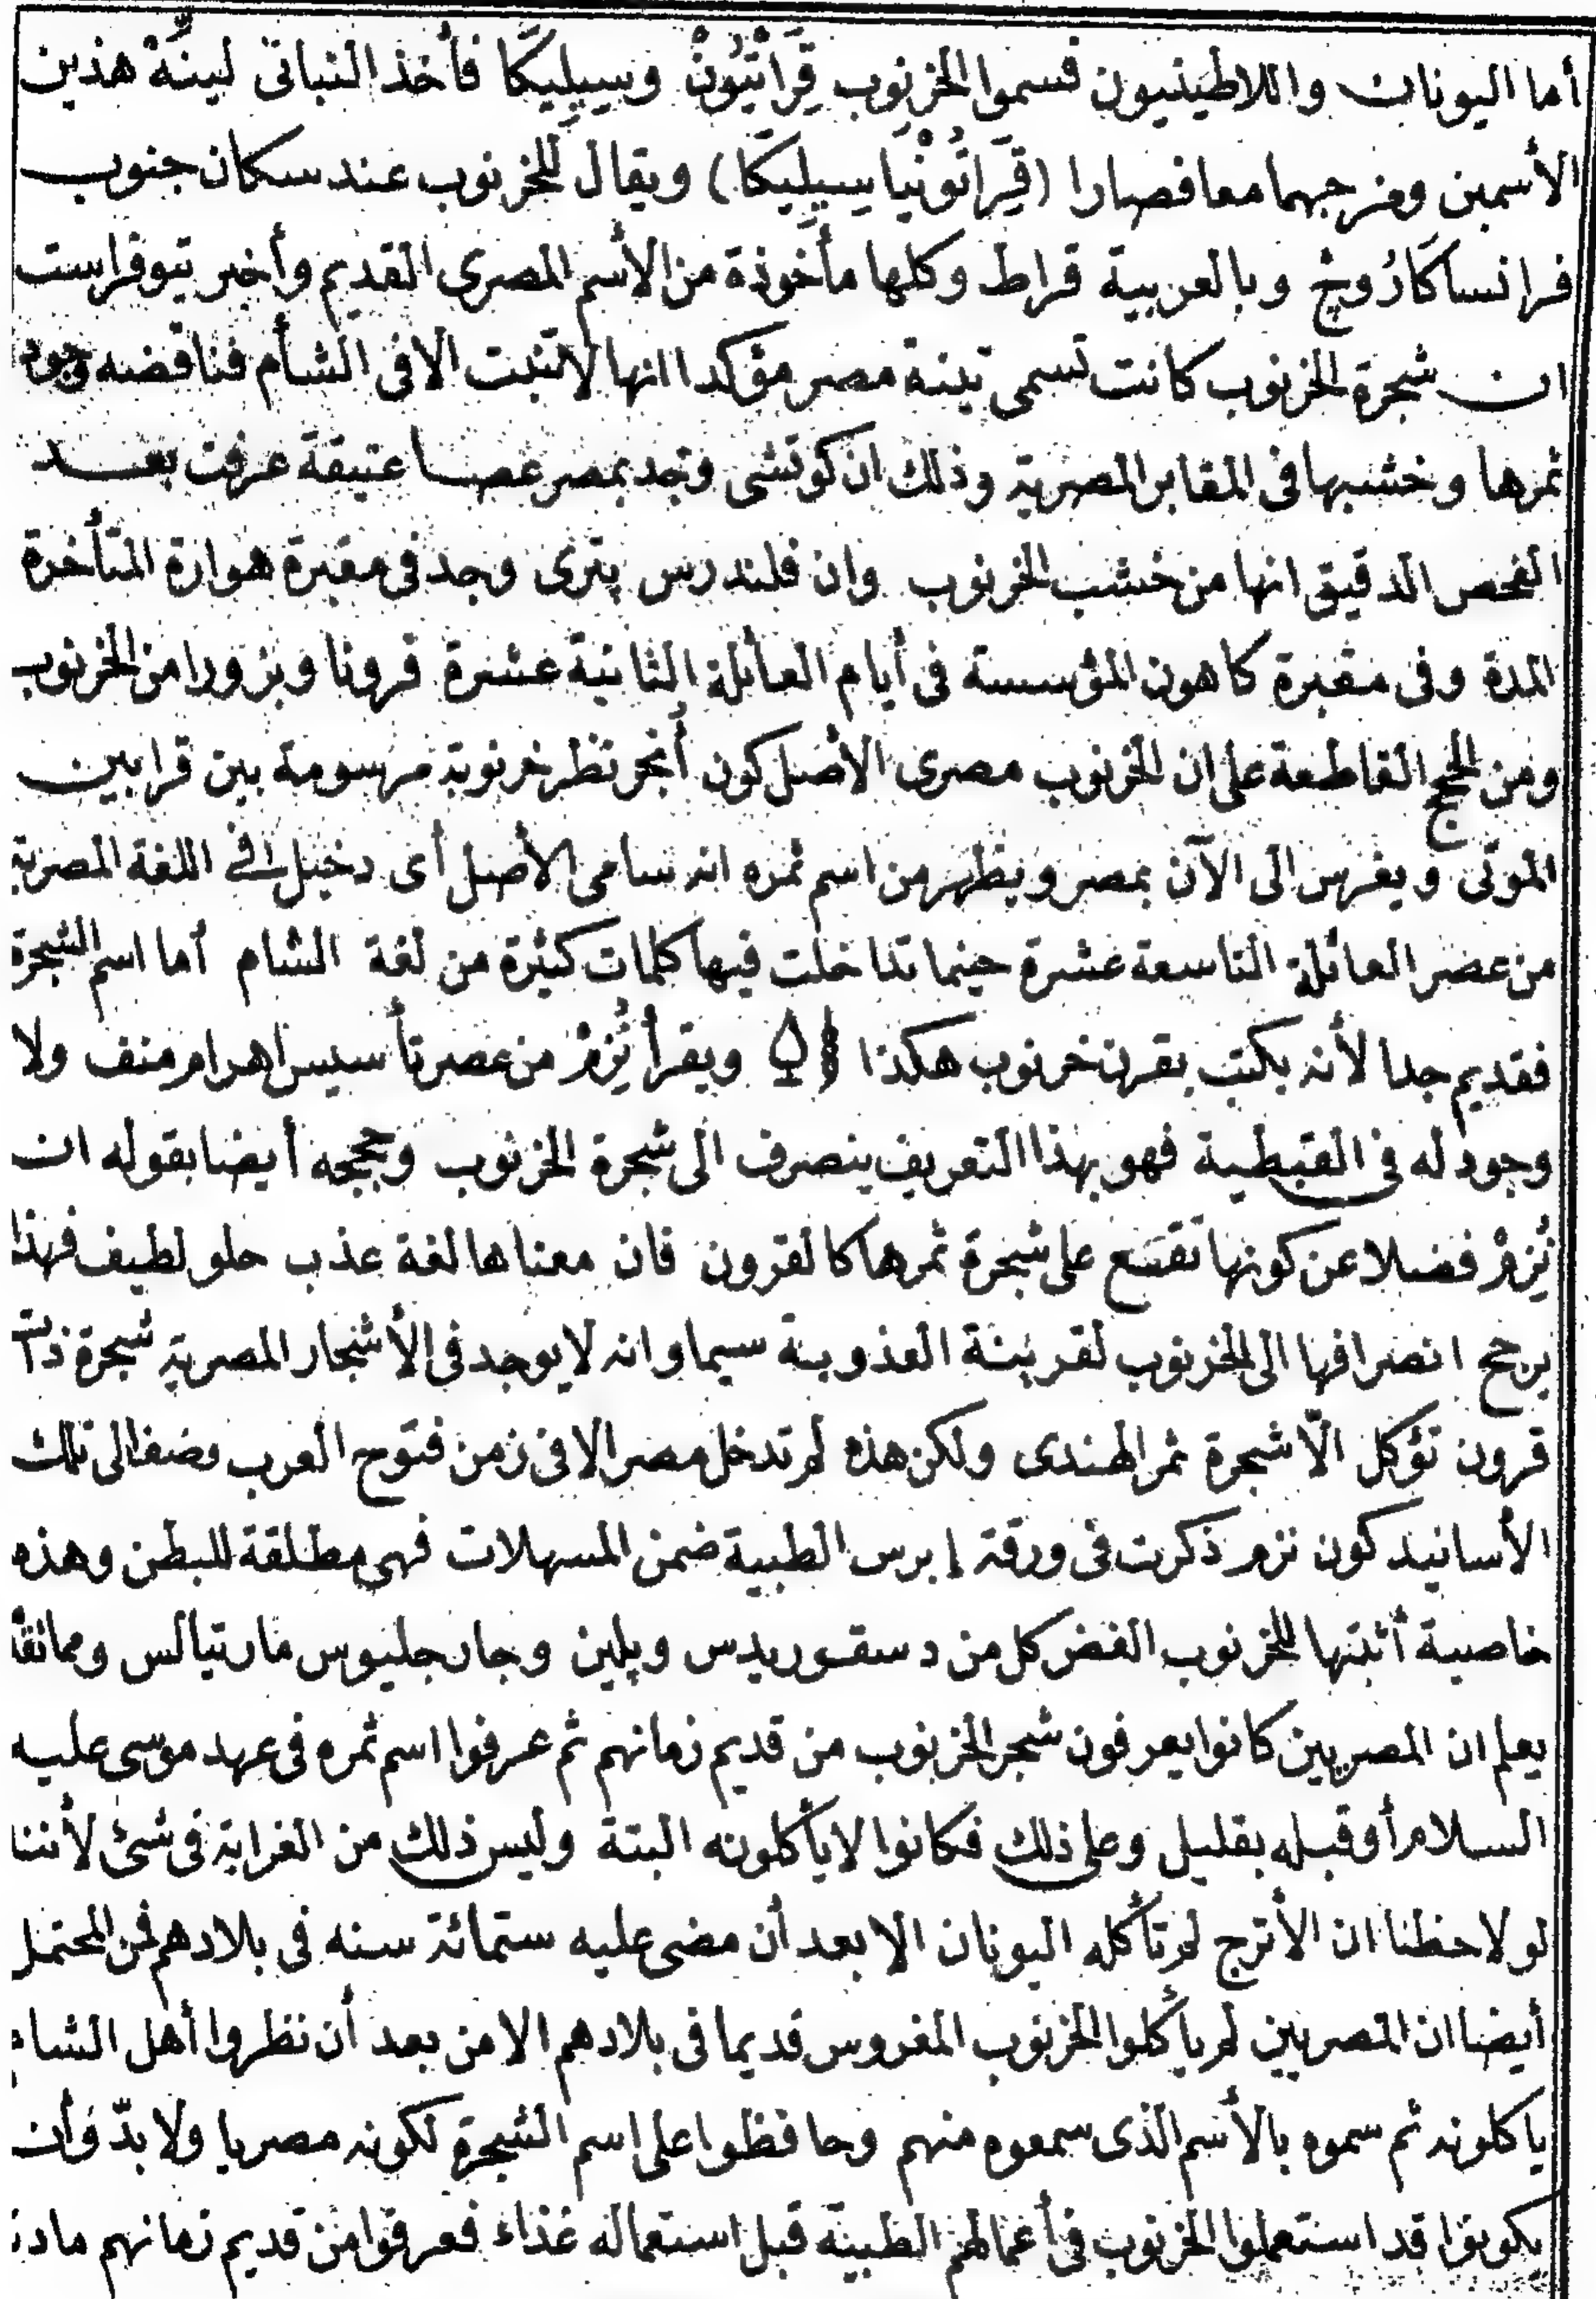 أما اليونان واللاطينيون فسموا الخرنوب قِرَاتْيُونْ وسِيلِيكَا فأخذ النباتى لينِّهْ هذين
الأسمين ومزجهما معا فصارا (قِرَاتُونْيَا سِيلِيكَا) ويقال للخرنوب عند سكان جنوب
فرانسا كَارُوبْ وبالعربية قراط وكلها مأخوذة من الأسم المصرى القديم وأخبر تيوفراست
ان شجرة الخرنوب كانت تسمى تينة مصر مؤكدا انها لا تنبت الا فى الشأم فناقضه وجود
ثمرها وخشبها فى المقابر المصرية وذلك ان كوتشى وجد بمصر عصا عتيقة عرفت بعد
الفحص الدقيق انها من خشب الخرنوب وان فلندرس پترى وجد فى مقبرة هوارة المتأخرة
المدة وفى مقبرة كاهون المؤسسة فى أيام العائلة الثانية عشرة قرونا وبزورا من الخرنوب
ومن الحجج القاطعة على ان الخرنوب مصرى الأصل كون أنجر نظر خرنوبة مرسومة بين قرابين
الموتى ويغرس الى الآن بمصر ويظهر من اسم ثمره انه سامى الأصل أى دخيل فى اللغة المصرية
من عصر العائلة التاسعة عشرة حينما تداخلت فيها كلمات كثيرة من لغة الشام أما اسم الشجرة
فقديم جدا لأنه يكتب بقرن خرنوب هكذا ويقرأ نُزِمْ من عصر تأسيس اهرام منف ولا
وجود له فى القبطية فهو بهذا التعريف ينصرف الى شجرة الخرنوب وحججه أيضا بقوله ان
نُزِمْ فضلا عن كونها تقع على شجرة ثمرها كالقرون فان معناها لغة عذب حلو لطيف فهذا
يرجح انصرافها الى الخرنوب لقرينة العذوبة سيما وانه لا يوجد فى الأشجار المصرية شجرة ذات
قرون تؤكل الّا شجرة ثمر الهندى ولكن هذه لم تدخل مصر الا فى زمن فتوح العرب وضف الى تلك
الأسانيد كون نزم ذكرت فى ورقة إبرس الطبية ضمن المسهلات فهى مطلقة للبطن وهذه
خاصية أثبتها للخرنوب الغض كل من دسقوريدس وپلين وجارجليوس مارتيالس ومما تقدم
يعلم ان المصريين كانوا يعرفون شجر الخرنوب من قديم زمانهم ثم عرفوا اسم ثمره فى عهد موسى عليه
السلام أو قبله بقليل وعلى ذلك فكانوا لا يأكلونه البتة وليس ذلك من الغرابة فى شئ لأننا
لو لاحظنا ان الأترج لم تأكله اليونان الا بعد أن مضى عليه ستمائة سنه فى بلادهم فمن المحتمل
أيضا ان المصريين لم يأكلوا الخرنوب المغروس قديما فى بلادهم الا من بعد أن نظروا أهل الشام
ياكلونه ثم سموه بالأسم الذى سمعوه منهم وحافظوا على اسم الشجرة لكونه مصريا ولا بدّ وأن
يكونوا قد استعملوا الخرنوب فى أعمالهم الطبية قبل استعماله غذاء فعرفوا من قديم زمانهم